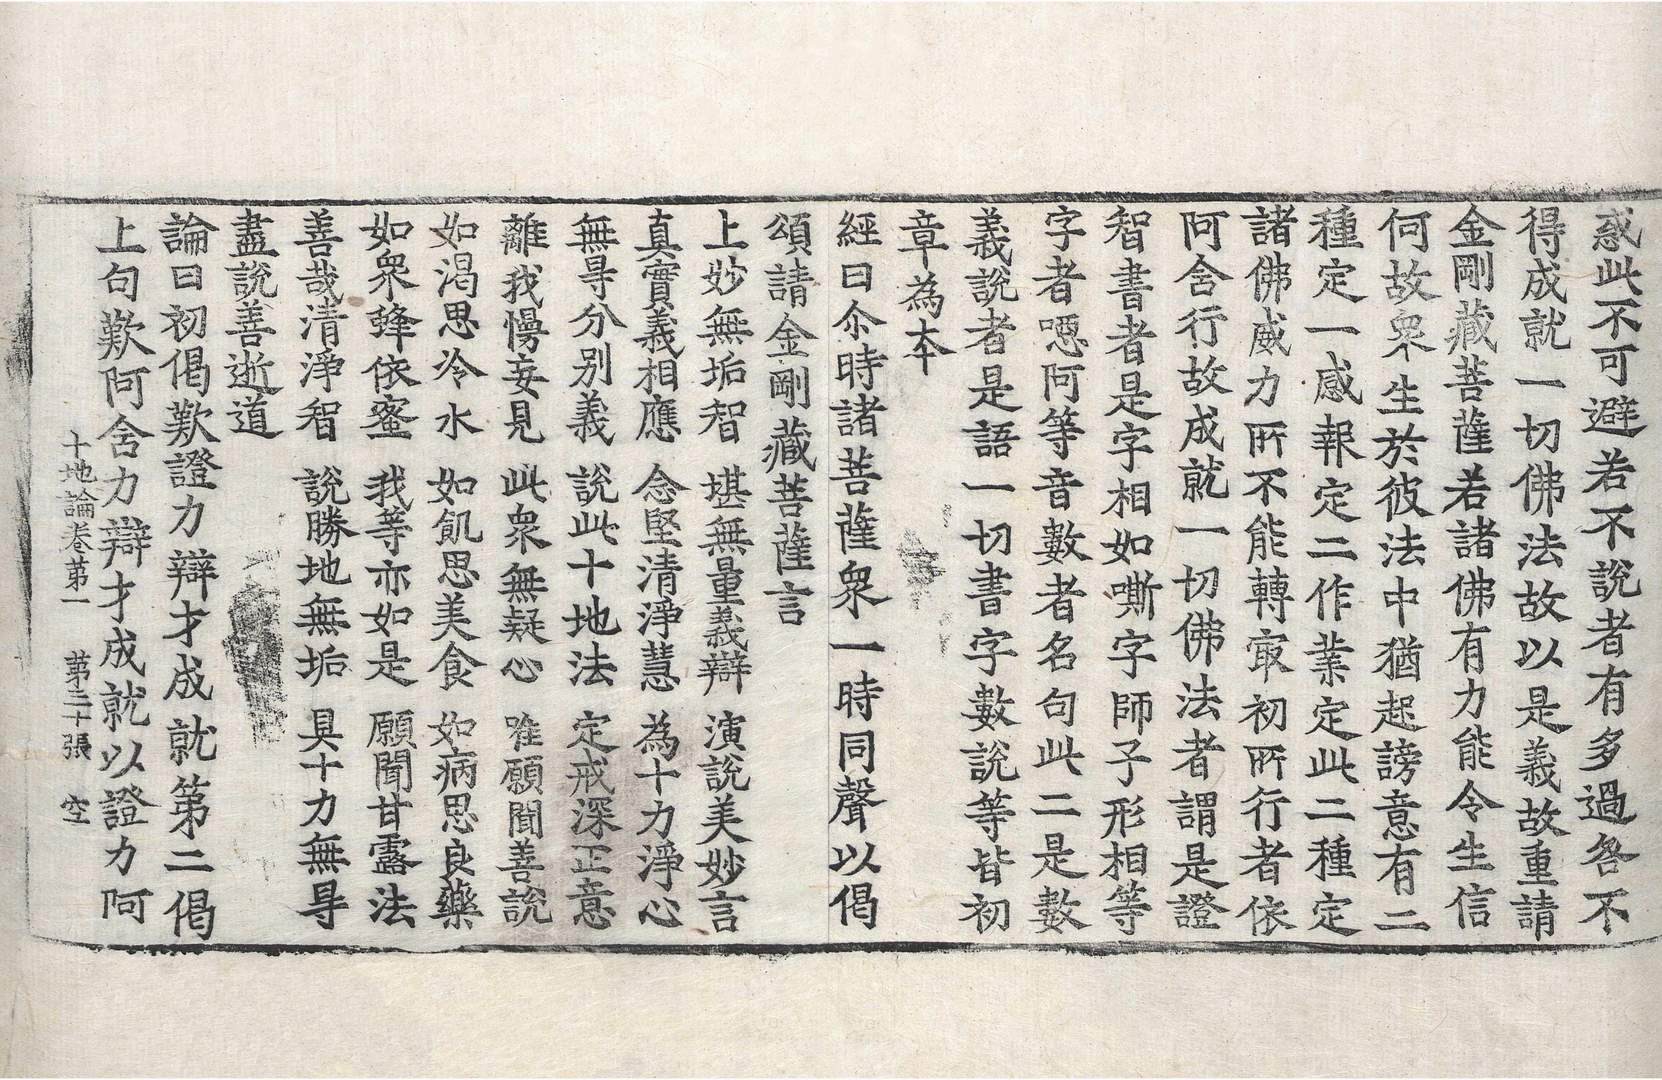 惑此不可避若不說者有多過咎不
得成就一切佛法故以是義故重請
金剛藏菩薩若諸佛有力能令生信
何故衆生於彼法中猶起謗意有二
種定一感報定二作業定此二種定
諸佛威力所不能轉㝡初所行者依
阿含行故成就一切佛法者謂是證
智書者是字相如嘶字師子形相等
字者噁阿等音數者名句此二是數
義說者是語一切書字數說等皆初
章為本
經曰尒時諸菩薩衆一時同聲以偈
頌請金剛藏菩薩言
上妙無垢智 堪無量義辯 演說美妙言
真實義相應 念堅清淨慧 為十力淨心
無㝵分別義 說此十地法 定戒深正意
離我慢妄見 此衆無疑心 唯願聞善說
如渴思冷水 如飢思美食 如病思良藥
如衆蜂依蜜 我等亦如是 願聞甘露法
善哉清淨智 說勝地無垢 具十力無㝵
盡說善逝道
論曰初偈歎證力辯才成就第二偈
上句歎阿含力辯才成就以證力阿
十地論卷第一 第二十張 空